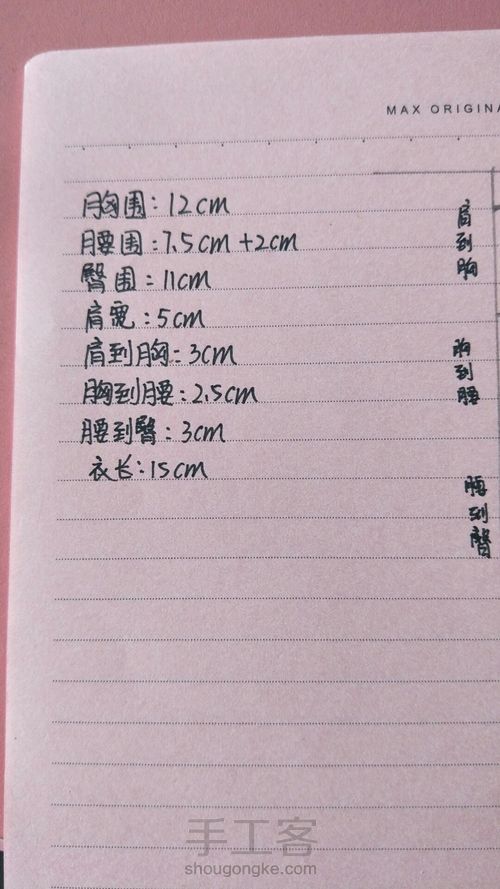 MAX ORIGINA
胸围:12cm
腰围:7.5cm+2cm
臀围:11cm
肩宽:5cm
肩到胸:3cm
胸到腰:2.5cm
腰到臀:3cm
衣长:15cm
肩到胸
胸到腰
腰到臀
手工客
shougongke.com